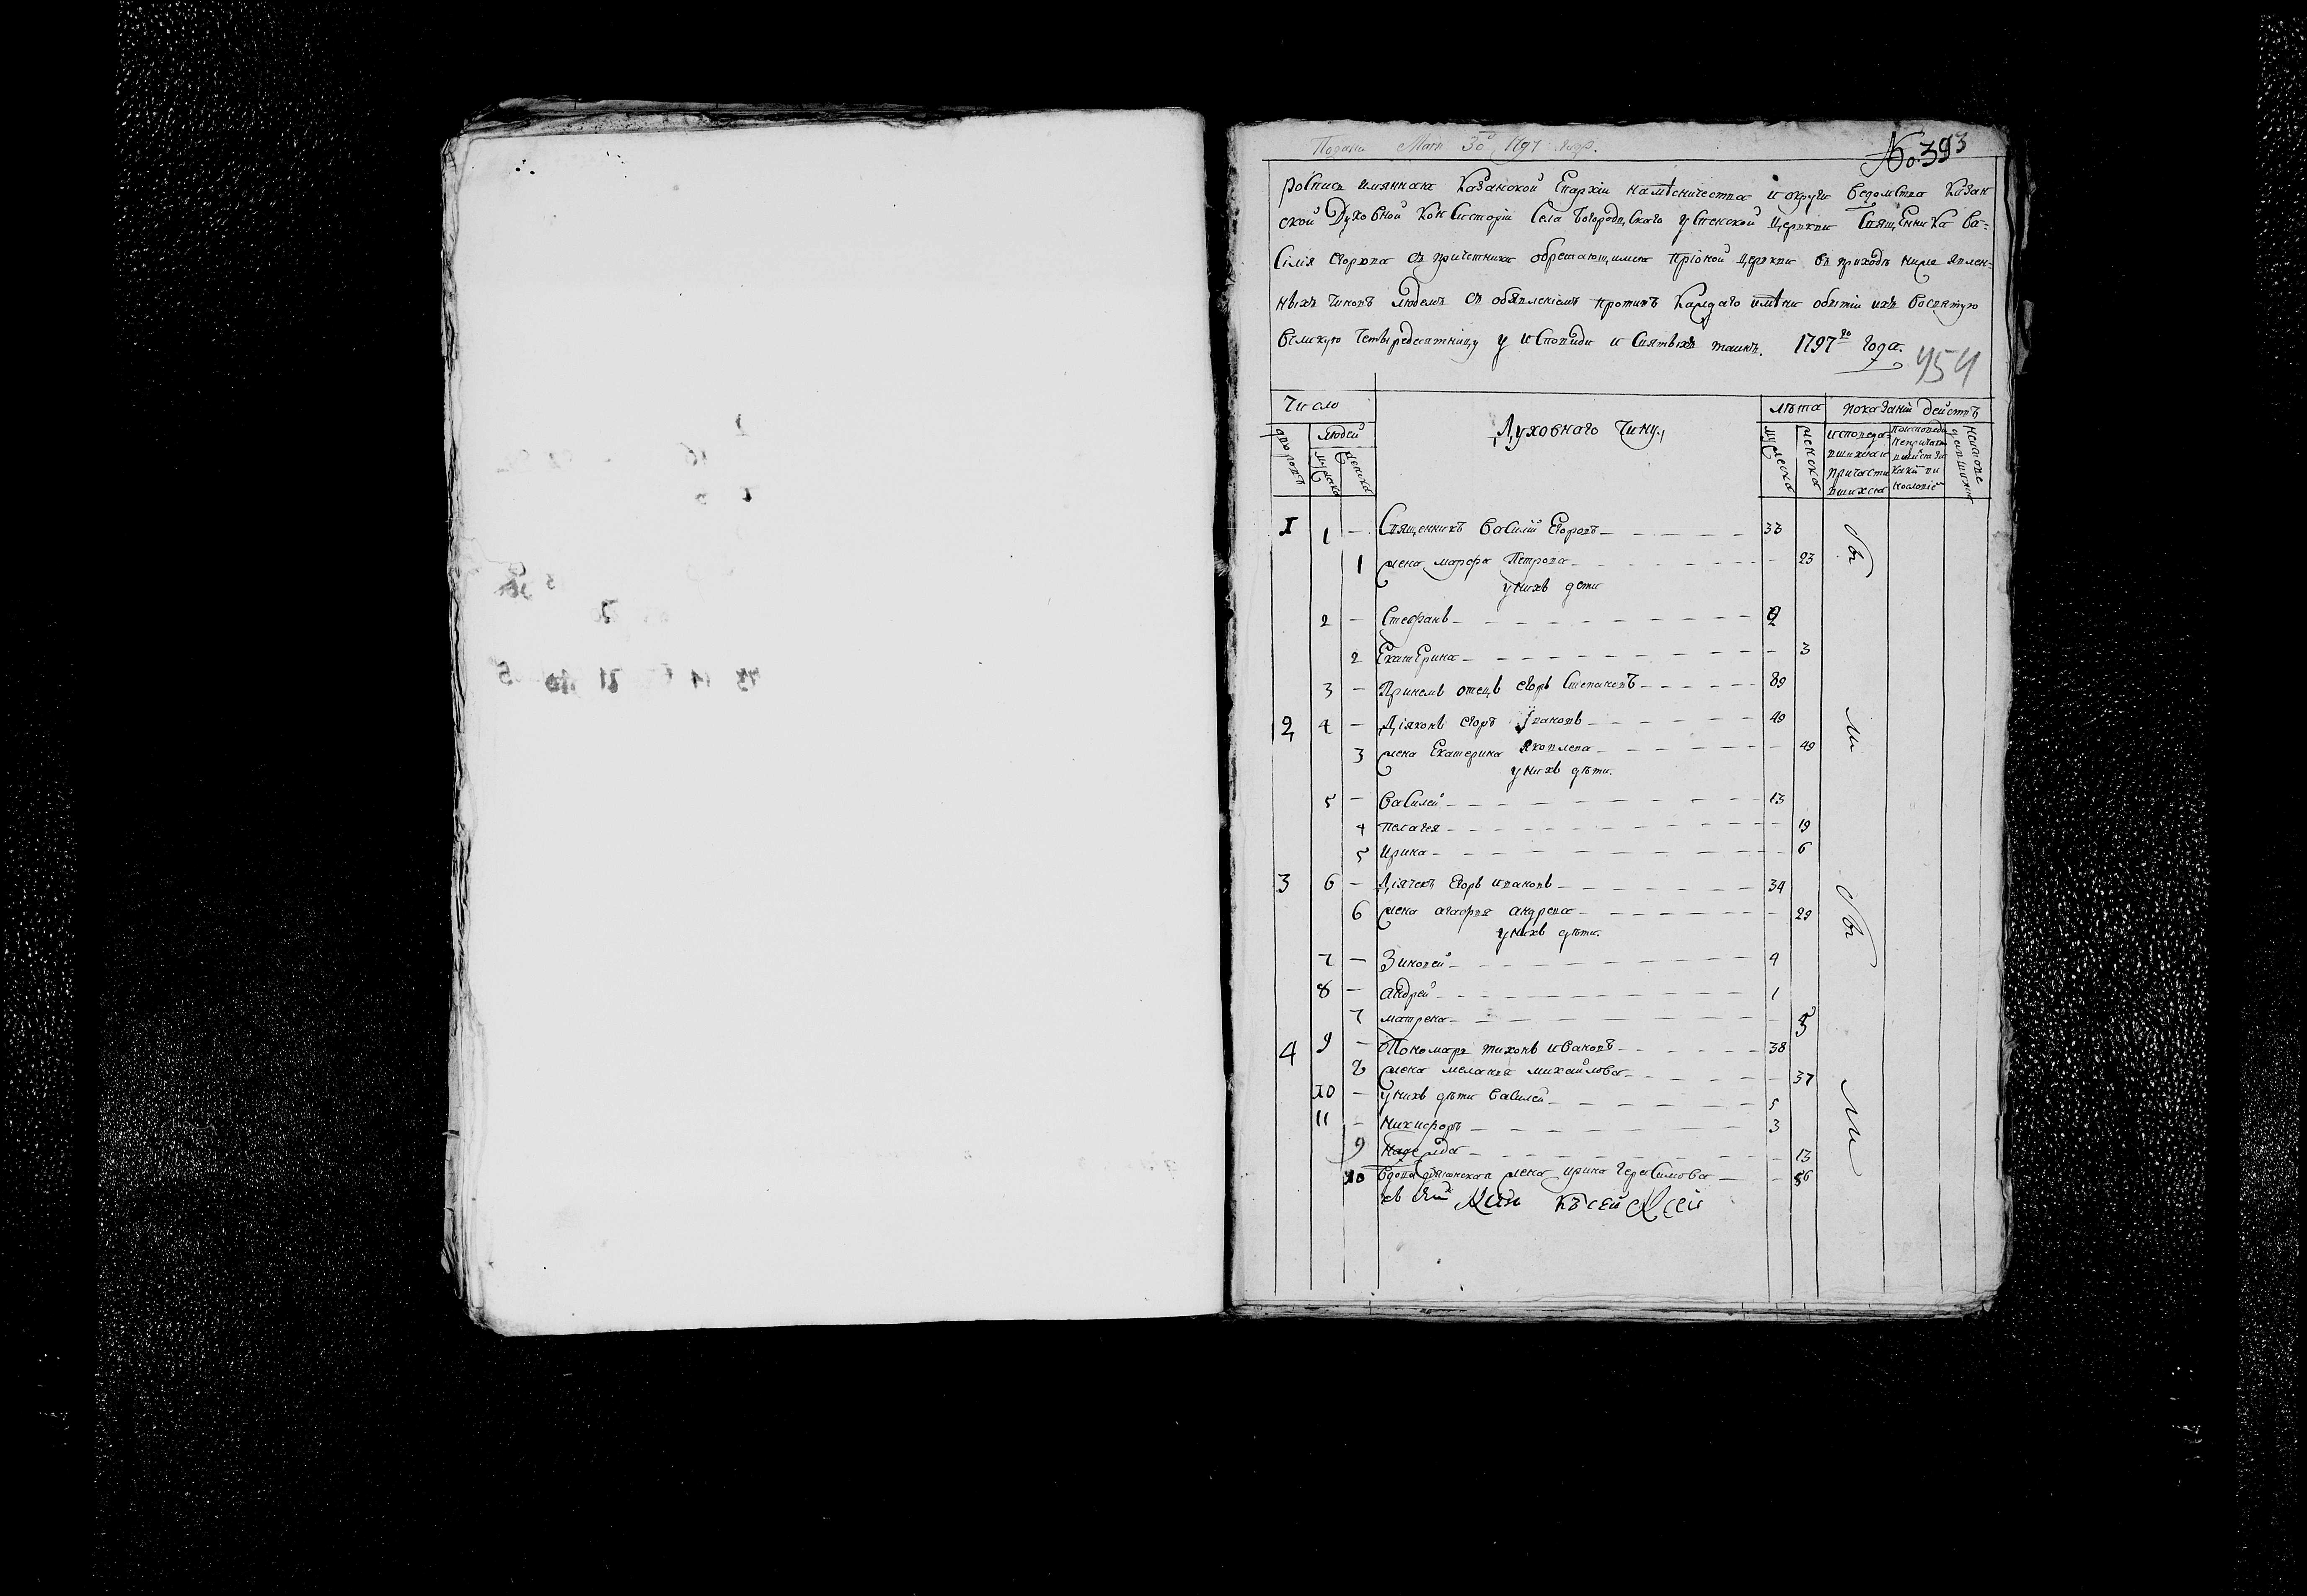 Подана Маія 30 1797 году.
№ 393
роспись имянная Казанской Епархіи наместничества и округи ведомства Казан
ской Духовной Консисторіи Села Богородскаго успенской Церкви Священника Ва=
силія егорова съ причетники обретающимся прионой церкви въ приходѣ ниже явлен=
ныхъ чиновъ людемъ съ объявленіемъ противъ каждаго имѣни обытіи ихъ восвятую
великую четыредесятницу у исповѣди и святыхъ таинъ. 1797го Года.
454
Число
лѣта
показаніи действъ
дворовъ
людей
мужеска
женска
Духовнаго чину
мужеска
женска
исповеда
вшихся и
причасти
вшихся
1 1 — Священникъ Василій Егоровъ 33
1 жена марфа Петрова 23
у нихъ дети
2 — Стефанъ
2 Екатерина 3
3 — При немъ отецъ егоръ Степановъ 89
2 4 — Діяконъ егоръ Ивановъ 49
3 жена Екатерина Яковлева 49
у нихъ дѣти
5 — Василей 13
4 пелагея 19
5 Ирина 6
3 6 — Діячекъ егоръ ивановъ 34
6 жена агафья андрева 29
у нихъ дѣти
7 — Зиновей 4
8 — андрей 1
7 матрена 5
4 9 — Пономарь тихонъ ивановъ 38
8 жена меланья михайлова 37
10 — у нихъ дѣти Василей 5
11 — никифоръ 3
9 надежда 13
10 вдова дьяконская жена ирина герасимова 56
къ сей
вы
ли
вы
ли